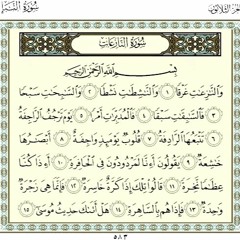 سُورَةُ النَّبَإِ
الجزء الثلاثون
سُورَةُ النَّازِعَاتِ
بِسْمِ اللَّهِ الرَّحْمَٰنِ الرَّحِيمِ
وَالنَّازِعَاتِ غَرْقًا ١ وَالنَّاشِطَاتِ نَشْطًا ٢ وَالسَّابِحَاتِ سَبْحًا
٣ فَالسَّابِقَاتِ سَبْقًا ٤ فَالْمُدَبِّرَاتِ أَمْرًا ٥ يَوْمَ تَرْجُفُ الرَّاجِفَةُ
٦ تَتْبَعُهَا الرَّادِفَةُ ٧ قُلُوبٌ يَوْمَئِذٍ وَاجِفَةٌ ٨ أَبْصَارُهَا
خَاشِعَةٌ ٩ يَقُولُونَ أَءِنَّا لَمَرْدُودُونَ فِي الْحَافِرَةِ ١٠ أَءِذَا كُنَّا
عِظَامًا نَّخِرَةً ١١ قَالُوا تِلْكَ إِذًا كَرَّةٌ خَاسِرَةٌ ١٢ فَإِنَّمَا هِيَ زَجْرَةٌ
وَاحِدَةٌ ١٣ فَإِذَا هُم بِالسَّاهِرَةِ ١٤ هَلْ أَتَاكَ حَدِيثُ مُوسَىٰ ١٥
٥٨٣